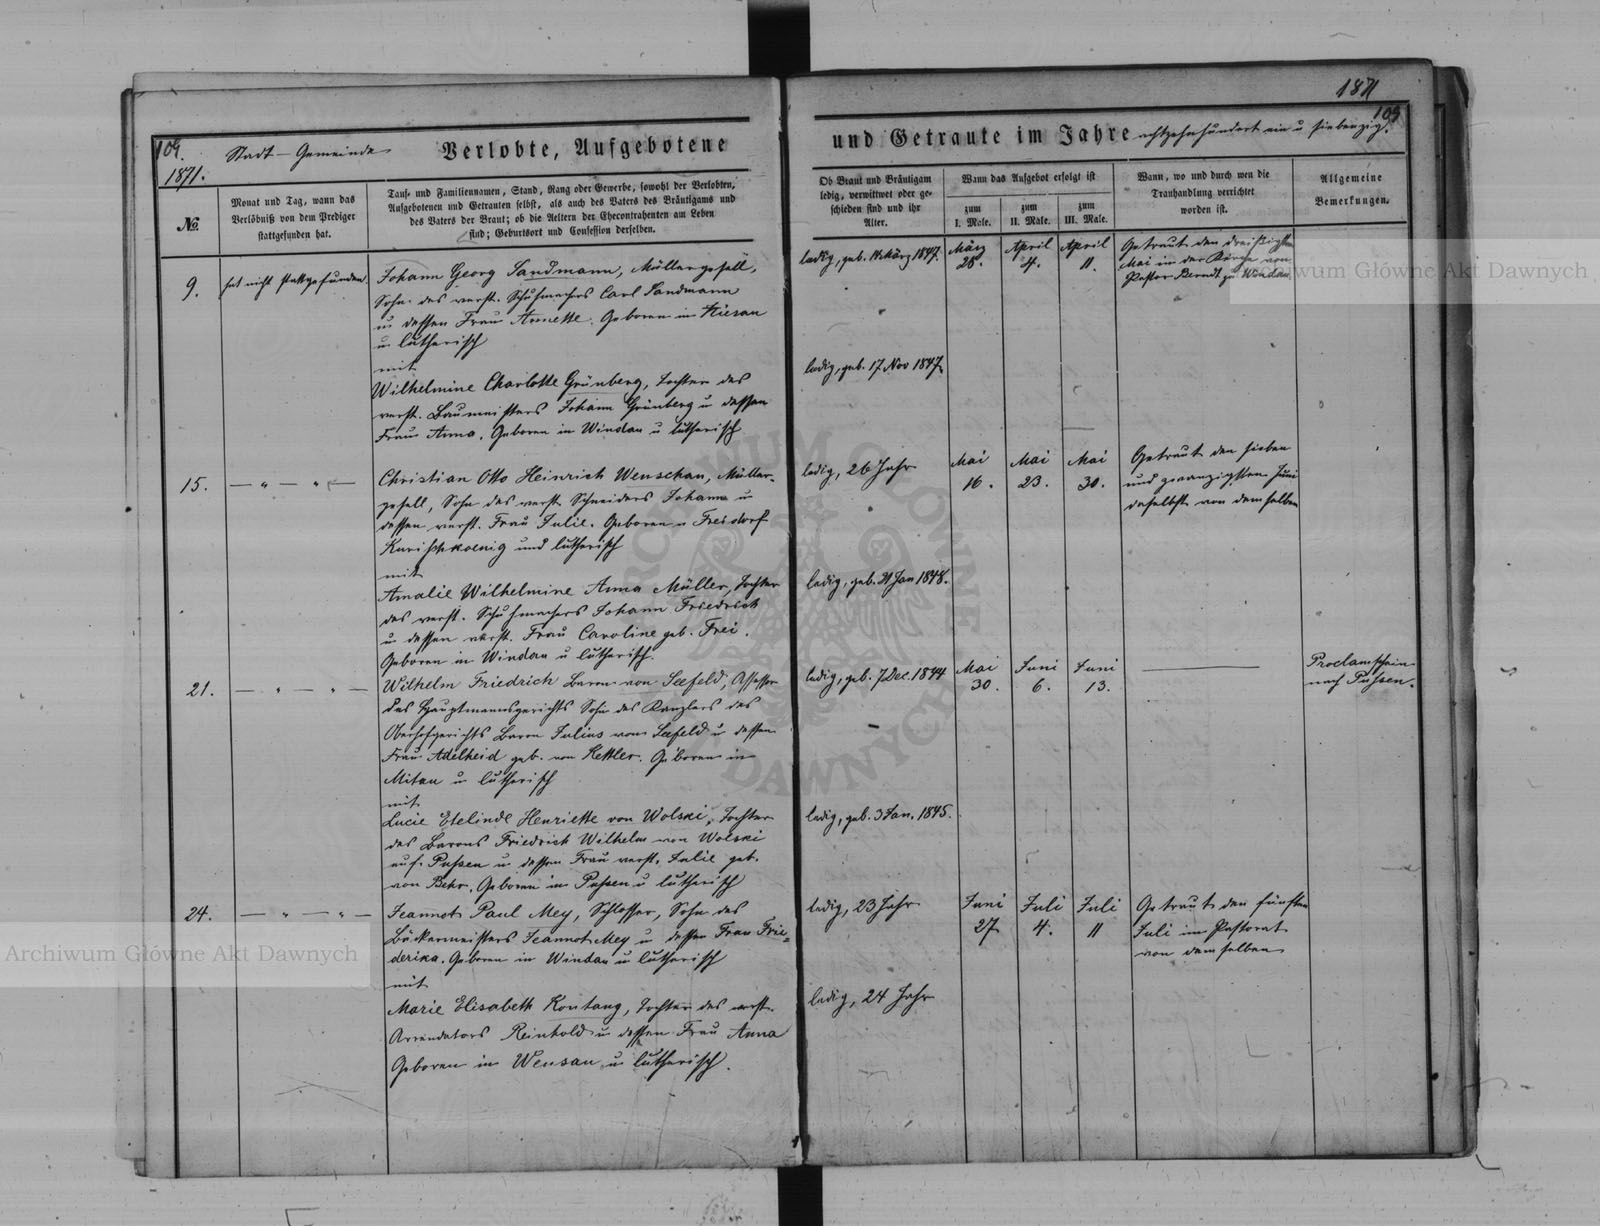 1871
109
104.
1871.
Stadt-Gemeinde
Verlobte, Aufgebotene
und Getraute im Jahre achtzehnhundert ein u siebenzig.
№
Monat und Tag, wann das
Verlöbniß von dem Prediger
stattgefunden hat.
Tauf- und Familiennamen, Stand, Rang oder Gewerbe, sowohl der Verlobten,
Aufgebotenen und Getrauten selbst, als auch des Vaters des Bräutigams und
des Vaters der Braut; ob die Aeltern der Ehecontrahenten am Leben
sind; Geburtsort und Confession derselben.
Ob Braut und Bräutigam
ledig, verwittwet oder ge-
schieden sind und ihr
Alter.
Wann das Aufgebot erfolgt ist
zum
I. Male.
zum
II. Male.
zum
III. Male.
Wann, wo und durch wen die
Trauhandlung verrichtet
worden ist.
Allgemeine
Bemerkungen.
9.
hat nicht stattgefunden.
Johann Georg Sandmann, Müllergesell,
Sohn des verst. Schuhmachers Carl Sandmann
u dessen Frau Annette. Geboren in
u lutherisch
mit
Wilhelmine Charlotte Grünberg, Tochter des
verst. Baumeisters Johann Grünberg u dessen
Frau Anna. Geboren in Windau u lutherisch
ledig, geb. März 1847.
März
28.
April
4.
April
11.
Getraut den dreißigsten
Mai in der Kirche von
Pastor Berndt zu Windau.
ledig, geb. 17 Nov 1847
15.
— " — " —
Christian Otto Heinrich Wenschau, Müller-
gesell, Sohn des verst Schneiders Johann u
dessen verst. Frau Julie. Geboren
und lutherisch
mit
Amalie Wilhelmine Anna Müller, Tochter
des verst. Schuhmachers Johann Friedrich
u dessen verst. Frau Caroline geb. Frei.
Geboren in Windau u lutherisch.
ledig, 26 Jahr
Mai
16.
Mai
23.
Mai
30.
Getraut den sieben
und zwanzigsten Juni
daselbst von demselben
ledig, geb. 21 Jan 1848.
21.
— " — " —
Wilhelm Friedrich Baron von Seefeld, Assessor
des Hauptmannsgerichts Sohn des Kanzlers des
Oberhofgerichts Baron Julius von Seefeld u dessen
Frau Adelheid geb. von Kettler. Geboren in
Mitau u lutherisch
mit
Lucie Etelinde Henriette von Wolski, Tochter
des Barons Friedrich Wilhelm von Wolski
auf Pussen u dessen Frau verst. Julie geb.
von Behr. Geboren in Pussen u lutherisch
ledig, geb. 7 Dec. 1844
Mai
30.
Juni
6.
Juni
13.
Proclamschein
nach Pussen.
ledig, geb. 3 Jan. 1845.
24.
— " — " —
Jeannot Paul Mey, Schlosser, Sohn des
Bäckermeisters Jeannot Mey u dessen Frau Frie-
derika. Geboren in Windau u lutherisch
mit
Marie Elisabeth Kontang, Tochter des verst.
Arrendators Reinhold u dessen Frau Anna
Geboren in Wensau u lutherisch.
ledig, 23 Jahr
Juni
27
Juli
4.
Juli
11
Getraut den fünften
Juli im Pastorat
von demselben
ledig, 24 Jahr
Archiwum Główne Akt Dawnych
Archiwum Główne Akt Dawnych
ARCHIWUM GŁÓWNE
AKT DAWNYCH